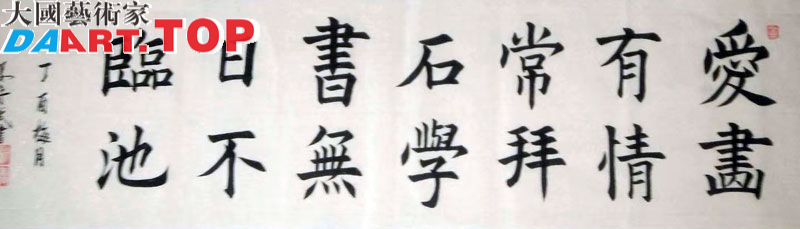 大國藝術家
DAART.TOP
愛畵
有情
常拜
石學
書無
日不
臨池
丁酉梅月